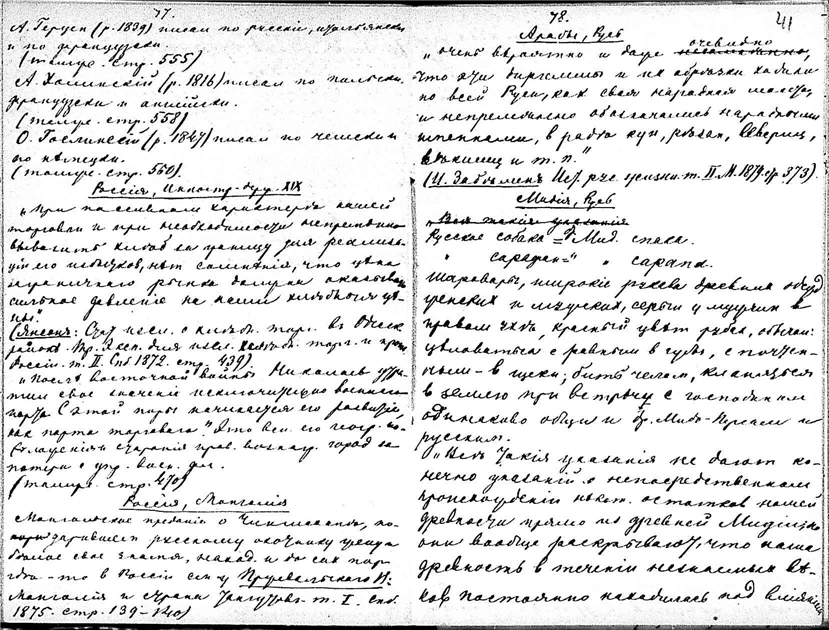 77.
А. Герцен (р. 1839) писал по русски, итальянски
и по французски.
(там же. стр. 555)
А. Холинскій (р. 1816) писал по польски,
французски и английски.
(там же. стр. 558)
О. Гостинскій (р. 1847) писал по чешски и
по нѣмецки.
(там же. стр. 560).
Россія, Иностр. XIX
„При пассивном характерѣ нашей
торговли и при необходимости непремѣнно
вывозить хлѣб за границу для реализа-
ціи его избытков, нѣт сомнѣнія, что цѣна
заграничного рынка должна оказывать
сильное давленіе на наши хлѣбныя цѣ-
ны".
(Янсон: о хлѣбн. торг. в Одесск.
районѣ. для изсл. хлѣбн. торг. и
Россіи. т. II. Спб 1872. стр. 439)
„Послѣ восточной войны Николаев утра-
тил свое значеніе исключительно военнаго
порта. С этой поры начинается его развитіе,
как порта торговаго." его
старанія прав. город за
потери
(там же. стр. 470)
Россія, Монголія
Монгольское преданіе о Чингисханѣ,
подарившем русскому охотнику
свое знамя, и до сих пор
гдѣ-то в Россіи см. у Пржевальскаго Н:
Монголія и страна Тангутов. т. I. Спб.
1875. стр. 139-140)
78.
41
Арабы, Русь
„очень вѣроятно и даже очевидно,
что эти диргемы и их обрѣзки ходили
по всей Руси, как своя народная монета,
и непремѣнно обозначались народными
именами, в родѣ кун, рѣзан, вевериц,
вѣкошиц и т. п."
(И. Забѣлин Ист. рус. жизни. т. II. М. 1879. стр 373).
Мидія, Русь
„Всѣ такія указанія
Русское собака = Др. Мид. спака.
„ сарафан = „ „ сарапа.
Шаровары, широкіе рукава древних одежд
женских и мужских, серьги у мужчин в
правом ухѣ, красный цвѣт рубах, обычаи:
цѣловаться с равным в губы, с почтен-
ным - в щеки; бить челом, кланяться
в землю при встрѣчѣ с господином
одинаково общи и др. Мидо-Персам и
русским.
„Всѣ такія указанія не дают ко-
нечно указаній о непосредственном
происхожденіи некот. остатков нашей
древности прямо из древней Мидіи,
они вообще раскрывают, что наша
древность в теченіи незнаемых вѣ-
ков постоянно находилась под вліяніем